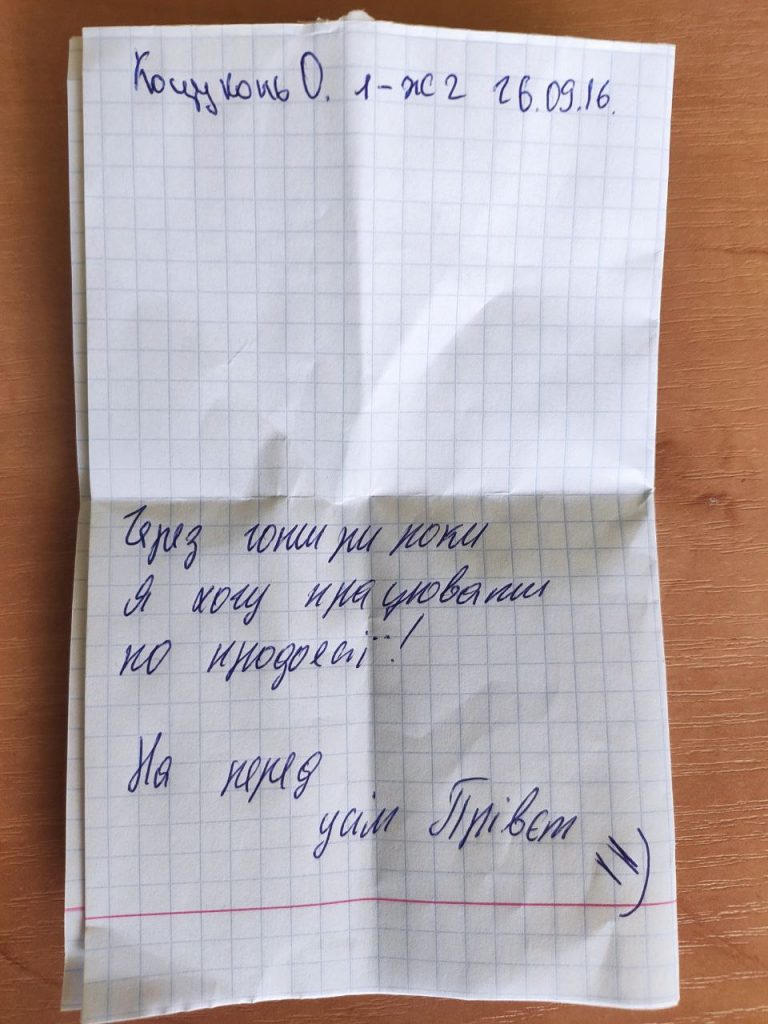 Кощуконь О. 1-ж 2 26.09.16.
Через чотири роки
я хочу працювати
по професії!
На перед
усім Прівєт